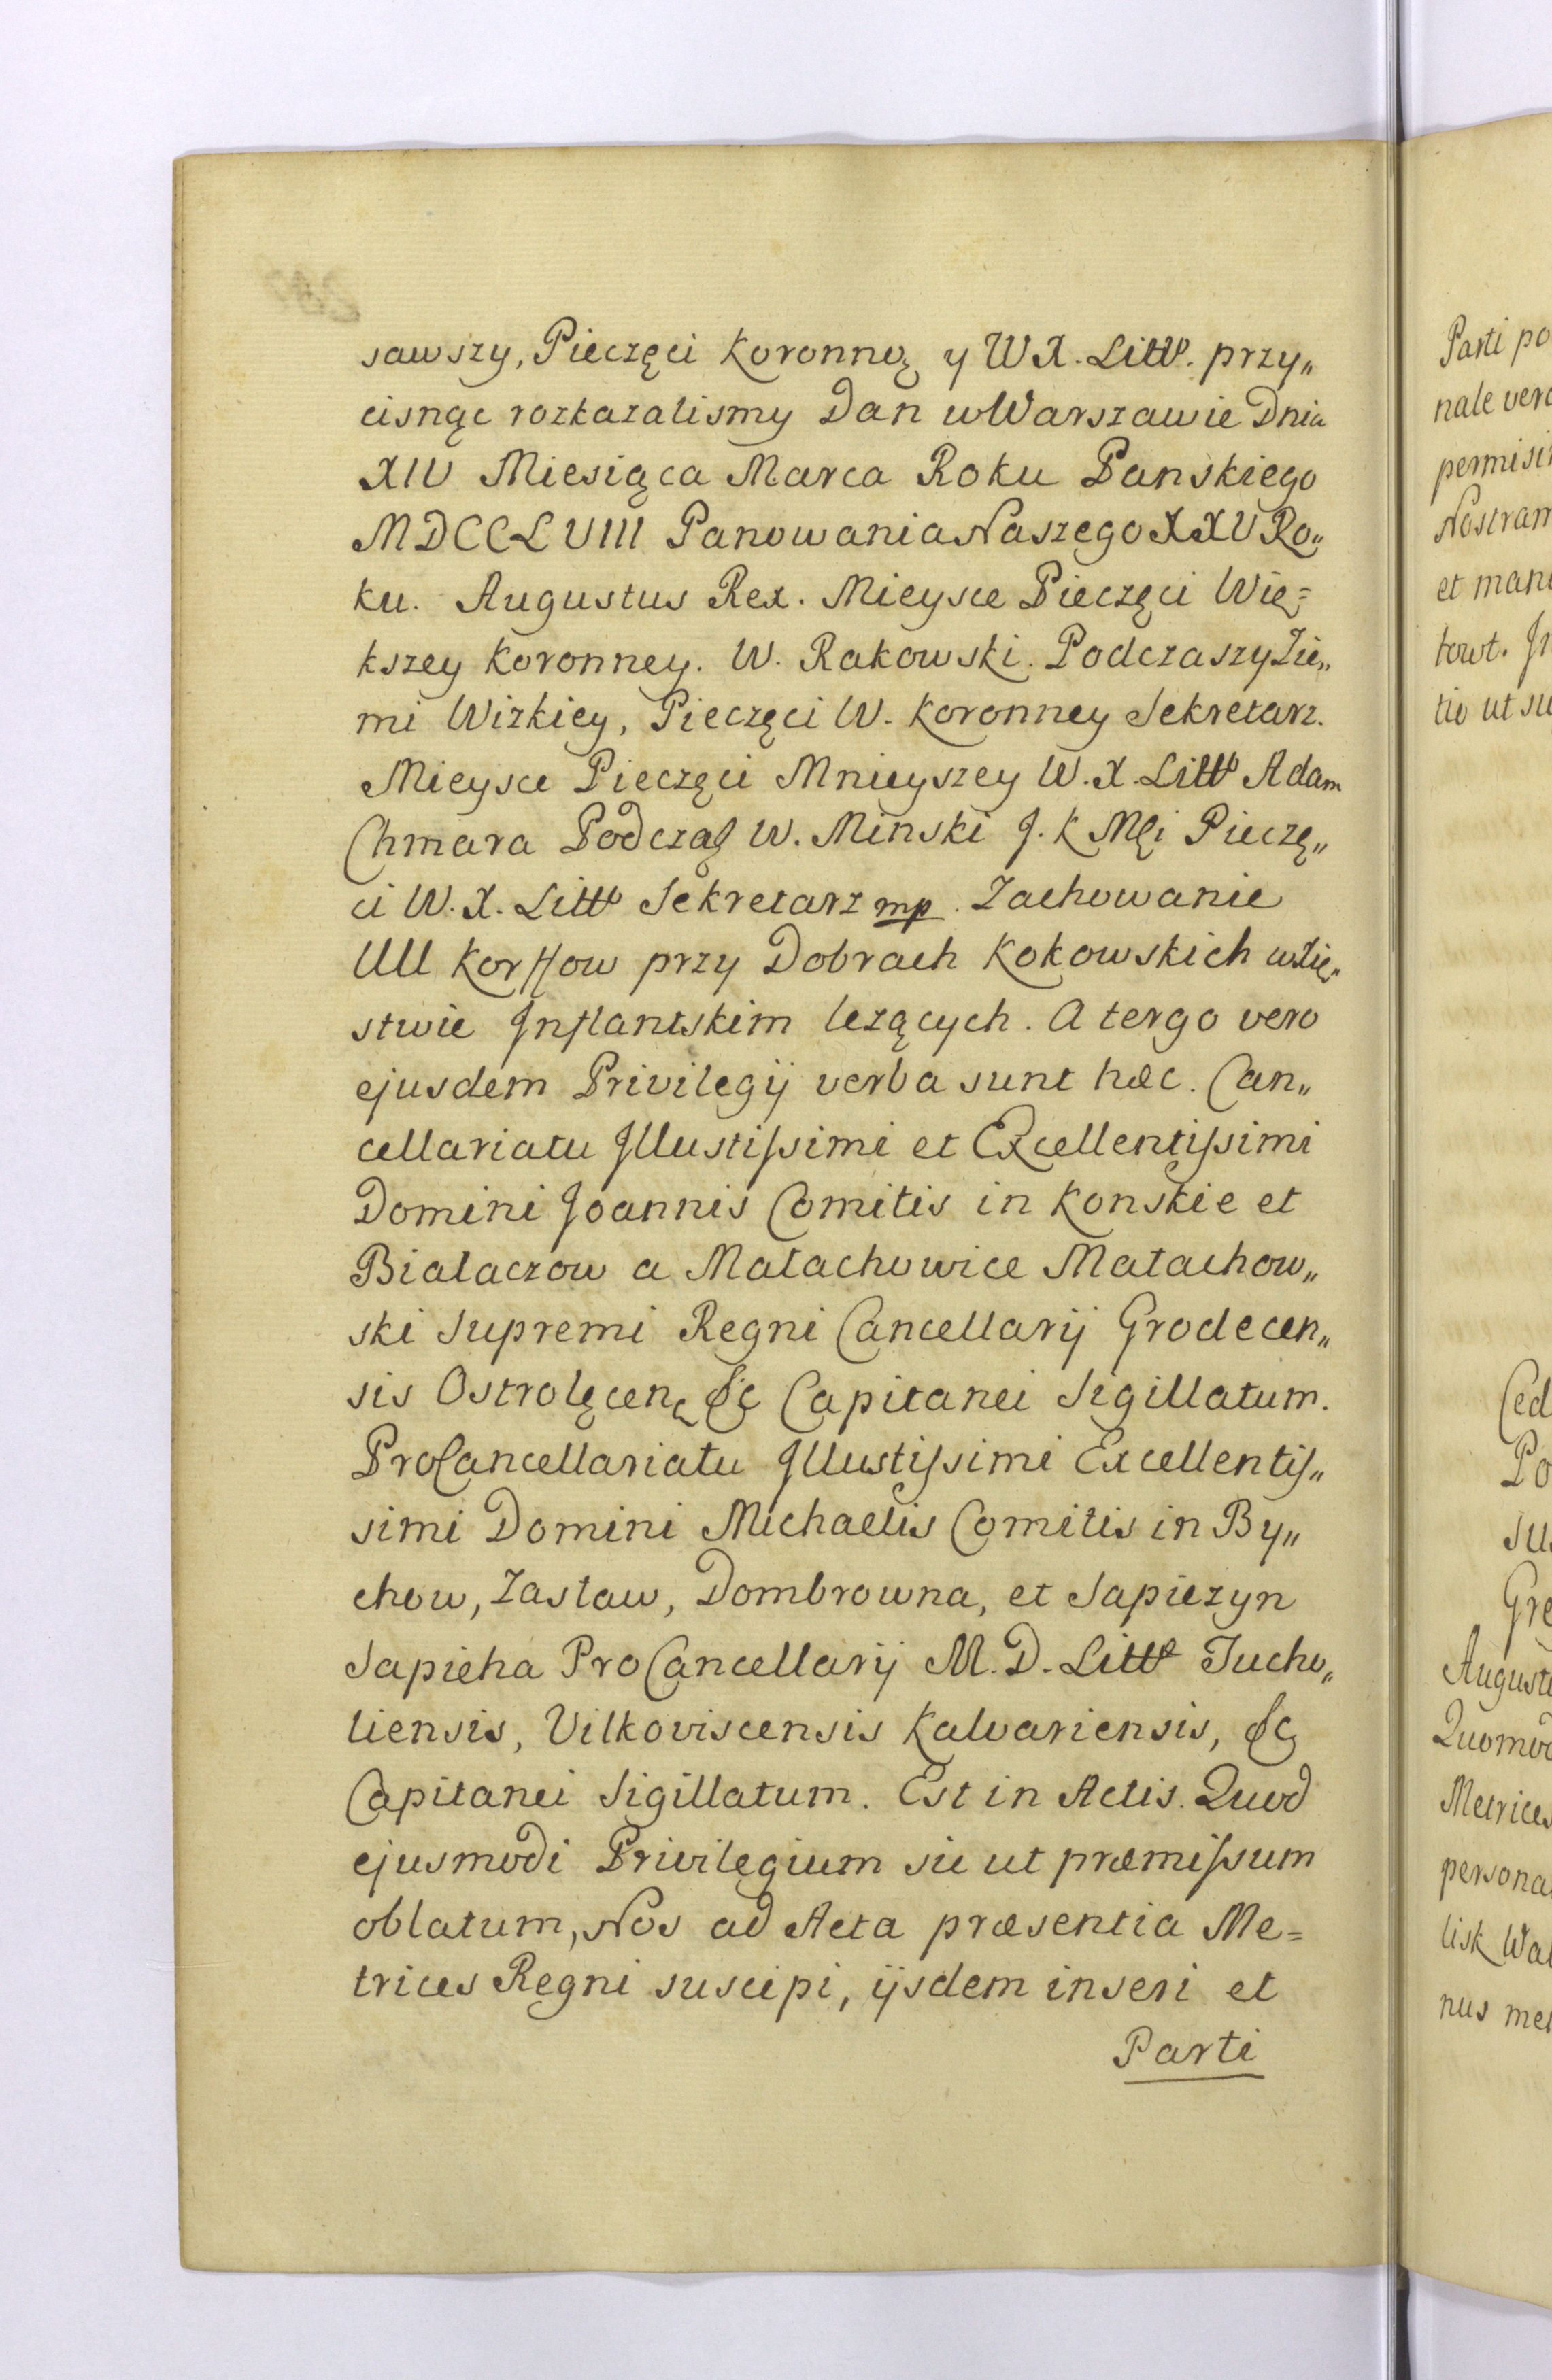 sawszy, Pieczęci Koronnę y W X. Litt͠o. przy„
cisnąc rozkazalismy Dan w Warszawie Dnia
XIV Miesiąca Marca Roku Panskiego
MDCCLVIII Panowania Naszego XXV Ro„
ku. Augustus Rex. Mieysce Pieczęci Wię=
kszey Koronney. W. Rakowski. Podczaszy Zie„
mi Wizkiey, Pieczęci W. Koronney Sekretarz.
Mieysce Pieczęci Mnieyszey W. X. Litt͠o Adam
Chmara Podczaß W. Minski J. K Męi Pieczę„
ci W. X. Litt͠o Sekretarz mp. Zachowanie
UU Korffow przy Dobrach Kokowskich w Xię„
stwie Inflantskim lezących. A tergo vero
ejusdem Privilegij verba sunt hæc. Can„
cellariatu Illustissimi et Excellentissimi
Domini Joannis Comitis in Konskie et
Bialaczow a Małachowice Małachow„
ski Supremi Regni Cancellarij Grodecen„
sis Ostrolęcen, &c Capitanei Sigillatum.
ProCancellariatu Illustissimi Excellentis„
simi Domini Michaelis Comitis in By„
chow, Zasław, Dombrowna, et Sapiezyn
Sapieha ProCancellarij M. D. Litt͠æ Tucho„
liensis, Vilkoviscensis Kalvariensis, &c
Capitanei Sigillatum. Est in Actis. Quod
ejusmodi Privilegium sic ut præmissum
oblatum, Nos ad Acta præsentia Me=
trices Regni suscipi, ijsdem inseri et
Parti
Parti po
nale vero
permisi
Nostram
et man
towt. In
tio ut su
Ced
Po
su
Gre
August
Quomod
Metrices
persona
lisk Wa
nus me